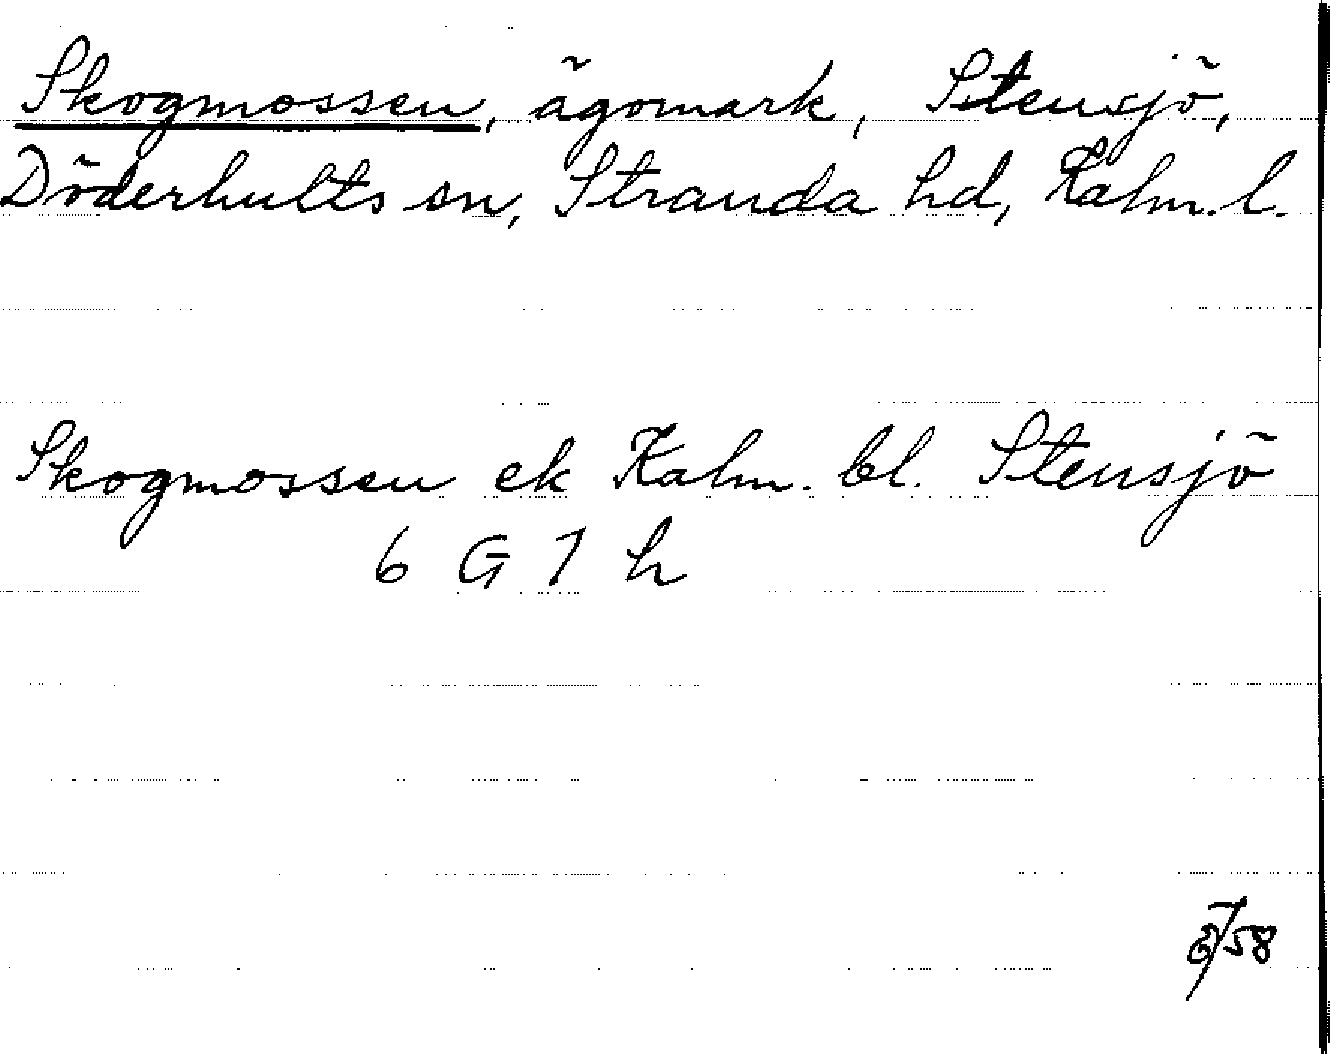 Skogmossen, ägomark, Stensjö,
Döderhults sn, Stranda hd, Kalm. l.
Skogmossen ek Kalm. bl. Stensjö
6 G 7 h
/58